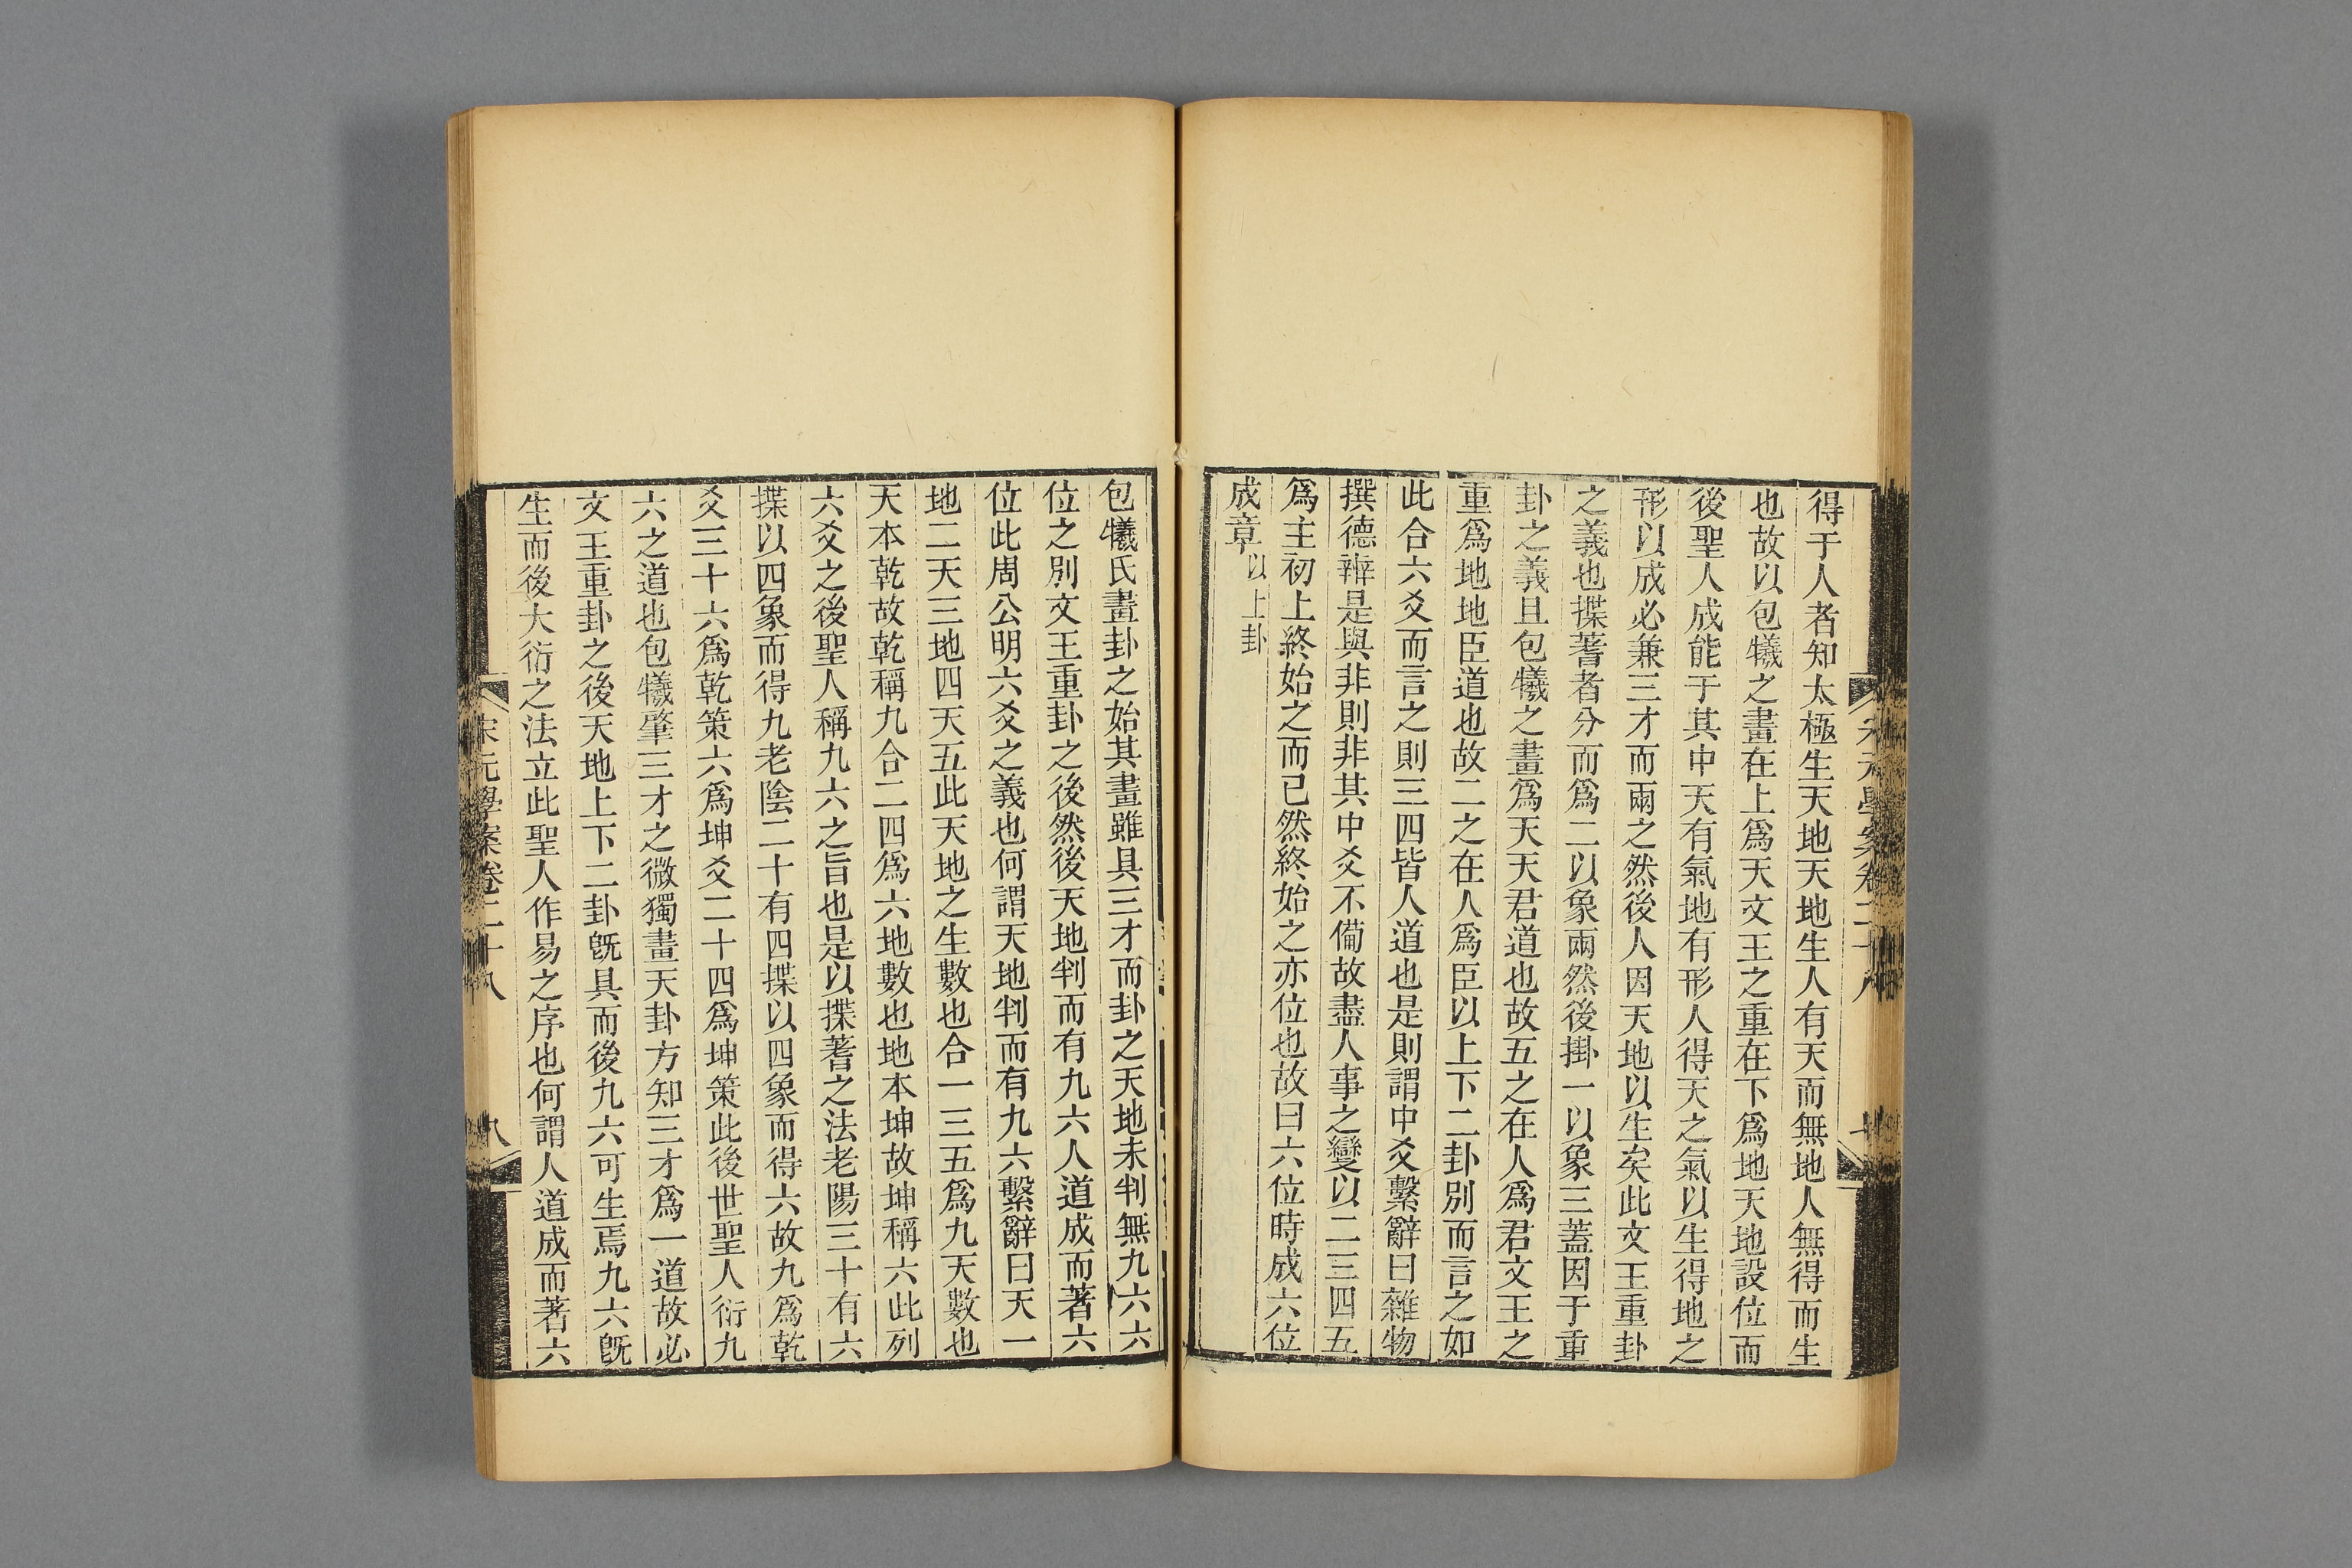 得于人者知太極生天地天地生人有天而無地人無得而生
也故以包犧之畫在上爲天文王之重在下爲地天地設位而
後聖人成能于其中天有氣地有形人得天之氣以生得地之
形以成必兼三才而兩之然後人因天地以生矣此文王重卦
之義也揲蓍者分而爲二以象兩然後掛一以象三蓋因于重
卦之義且包犧之畫爲天天君道也故五之在人爲君文王之
重爲地地臣道也故二之在人爲臣以上下二卦別而言之如
此合六爻而言之則三四皆人道也是則謂中爻繫辭曰雜物
撰德辨是與非則非其中爻不備故盡人事之變以二三四五
爲主初上終始之而已然終始之亦位也故曰六位時成六位
成章以上卦
包犧氏畫卦之始其畫雖具三才而卦之天地未判無九六六
位之別文王重卦之後然後天地判而有九六人道成而著六
位此周公明六爻之義也何謂天地判而有九六繫辭曰天一
地二天三地四天五此天地之生數也合一三五爲九天數也
天本乾故乾稱九合二四爲六地數也地本坤故坤稱六此列
六爻之後聖人稱九六之旨也是以揲蓍之法老陽三十有六
揲以四象而得九老陰二十有四揲以四象而得六故九爲乾
爻三十六爲乾策六爲坤爻二十四爲坤策此後世聖人衍九
六之道也包犧肇三才之微獨畫天卦方知三才爲一道故必
文王重卦之後天地上下二卦旣具而後九六可生焉九六旣
生而後大衍之法立此聖人作易之序也何謂人道成而著六
宋元學案卷二十八
九